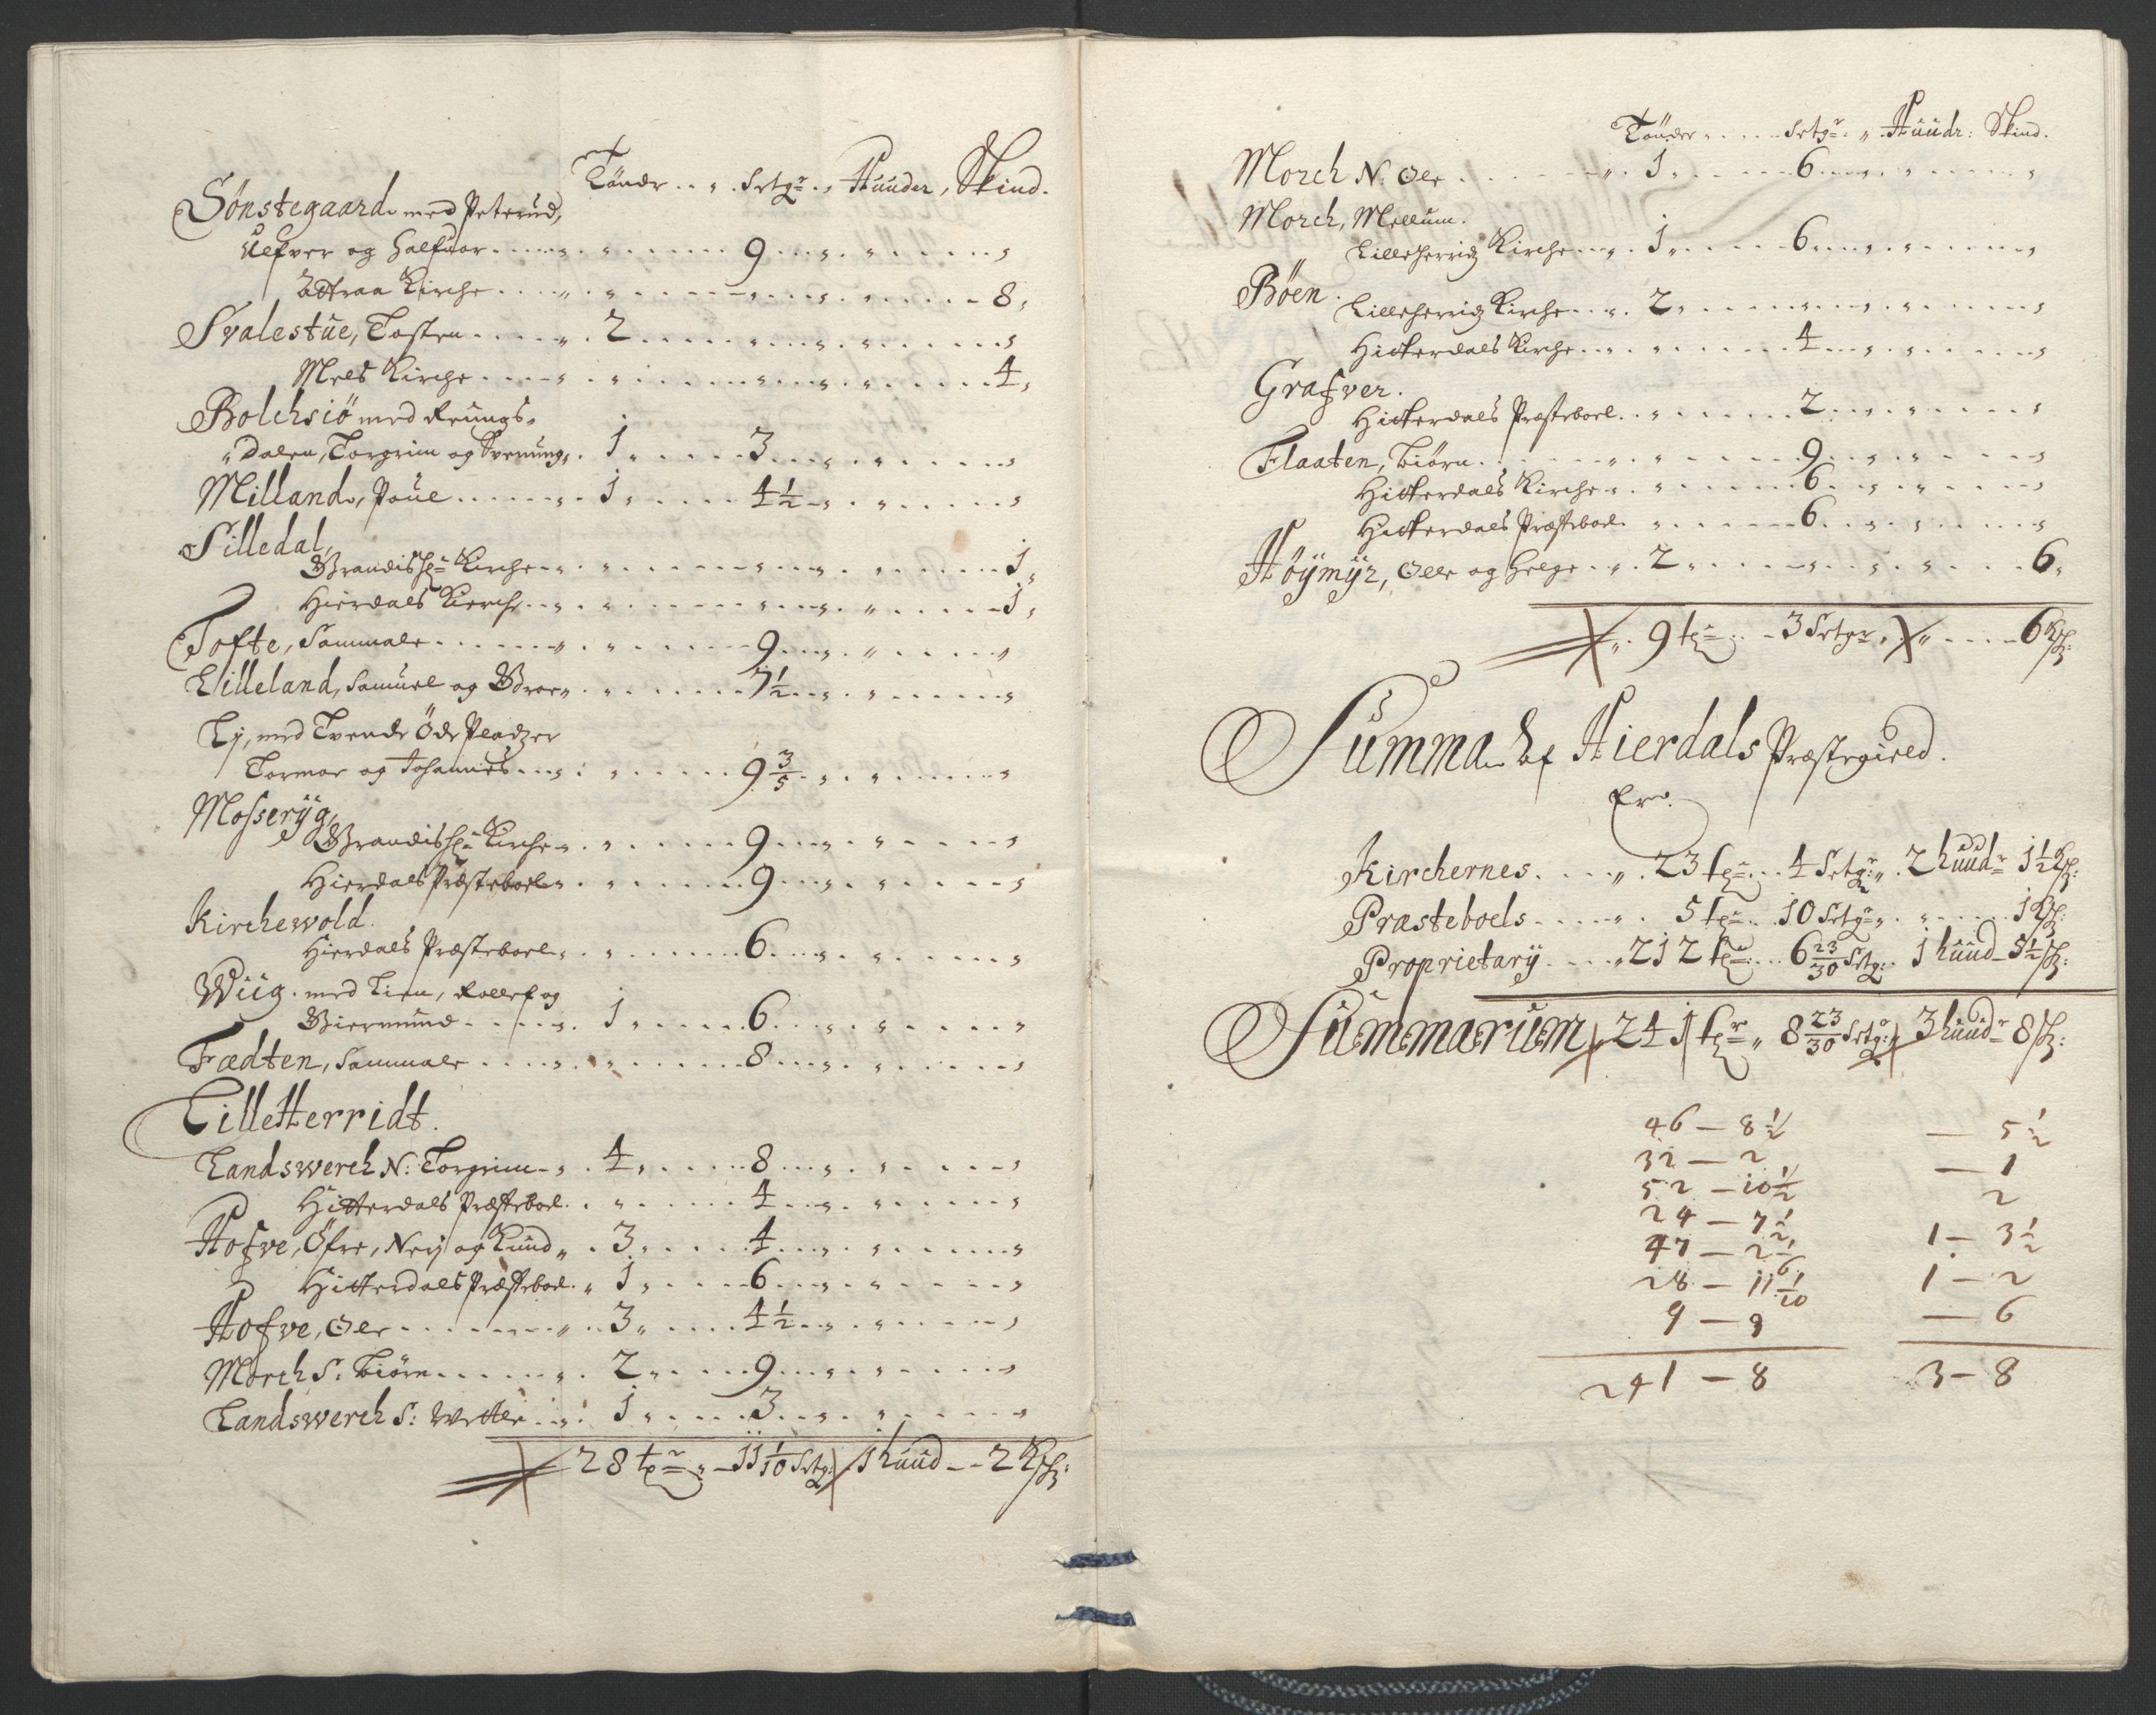 Tönder Setgr Huuder, Skind.
Sönstegaard med Peterud,
Ulfver og Halfuor 9
Attraa Kirche 8
Svalestüe, Tosten 2
Mels Kirche 4
Bolchsiö med Reungs-
dalen, Torgrim og Svenung 1 3
Milland, Poüel 1 4½
Silledal,
Brandisshl: Kirche 1
Hierdals Kirche 1
Tofte, Sammale 9
Lilleland, Samuel og Broer 7½
Lj, med Tvende Öde Pladzer
Tormor og Johannes 9 3/5
Mosserÿg,
Brandisshl: Kirche 9
Hierdals Præsteboel 9
Kirchewold.
Hierdals Præsteboel 6
Wiig. med Lien, Rollef og
Biermund 1 6
Fædten, Sammale 8
LilleHerridt.
Landswerch N: Torgrim 4 8
Hitterdals Præsteboel. 4
Hofve, Öfre, Neri og Knud 3 4
Hitterdals Præsteboel. 1 6
Hofve, Ole 3 4½
Morch S. Biörn 2 9
Landswerch S: Wetle 1 3
28 tr 11 1/10 Setg: 1 huud 2 Ksk:
Tönder Setgr Huudr: Skind.
Morch N: Ole 1 6
Morch, Mellum.
Lilleherridz Kirche 1 6
Böen.
Lilleherridz Kirche 2
Hitterdals Kirche 4
Grafver.
Hitterdals Præsteboel 2
Flaaten, Biörn 9
Hitterdals Kirche 6
Hitterdals Præsteboel 6
Höÿmÿr, Olle og Helge 2 6
9 tr 3 Setgr 6 Ksk:
Summa Af Hierdals Præstegield.
Er.
Kirchernes 23 tr 4 Setgr 2 huudr 1½ Ksk:
Præsteboels 5 tr 10 Setgr 1 Ksk:
Proprietarÿ 212 tr 6 23/30 Setg: 1 huud 5½ sk:
Summarum 241 tr 8 23/30 Setg: 3 huudr 8 sk:
46 — 8½ — 5½
32 — 2 — 1
52 — 10½ 2
24 — 7½
47 — 2 1/6 1 — 3½
28 — 11 1/10 1 — 2
9 — 9 — 6
241 — 8 3 — 8